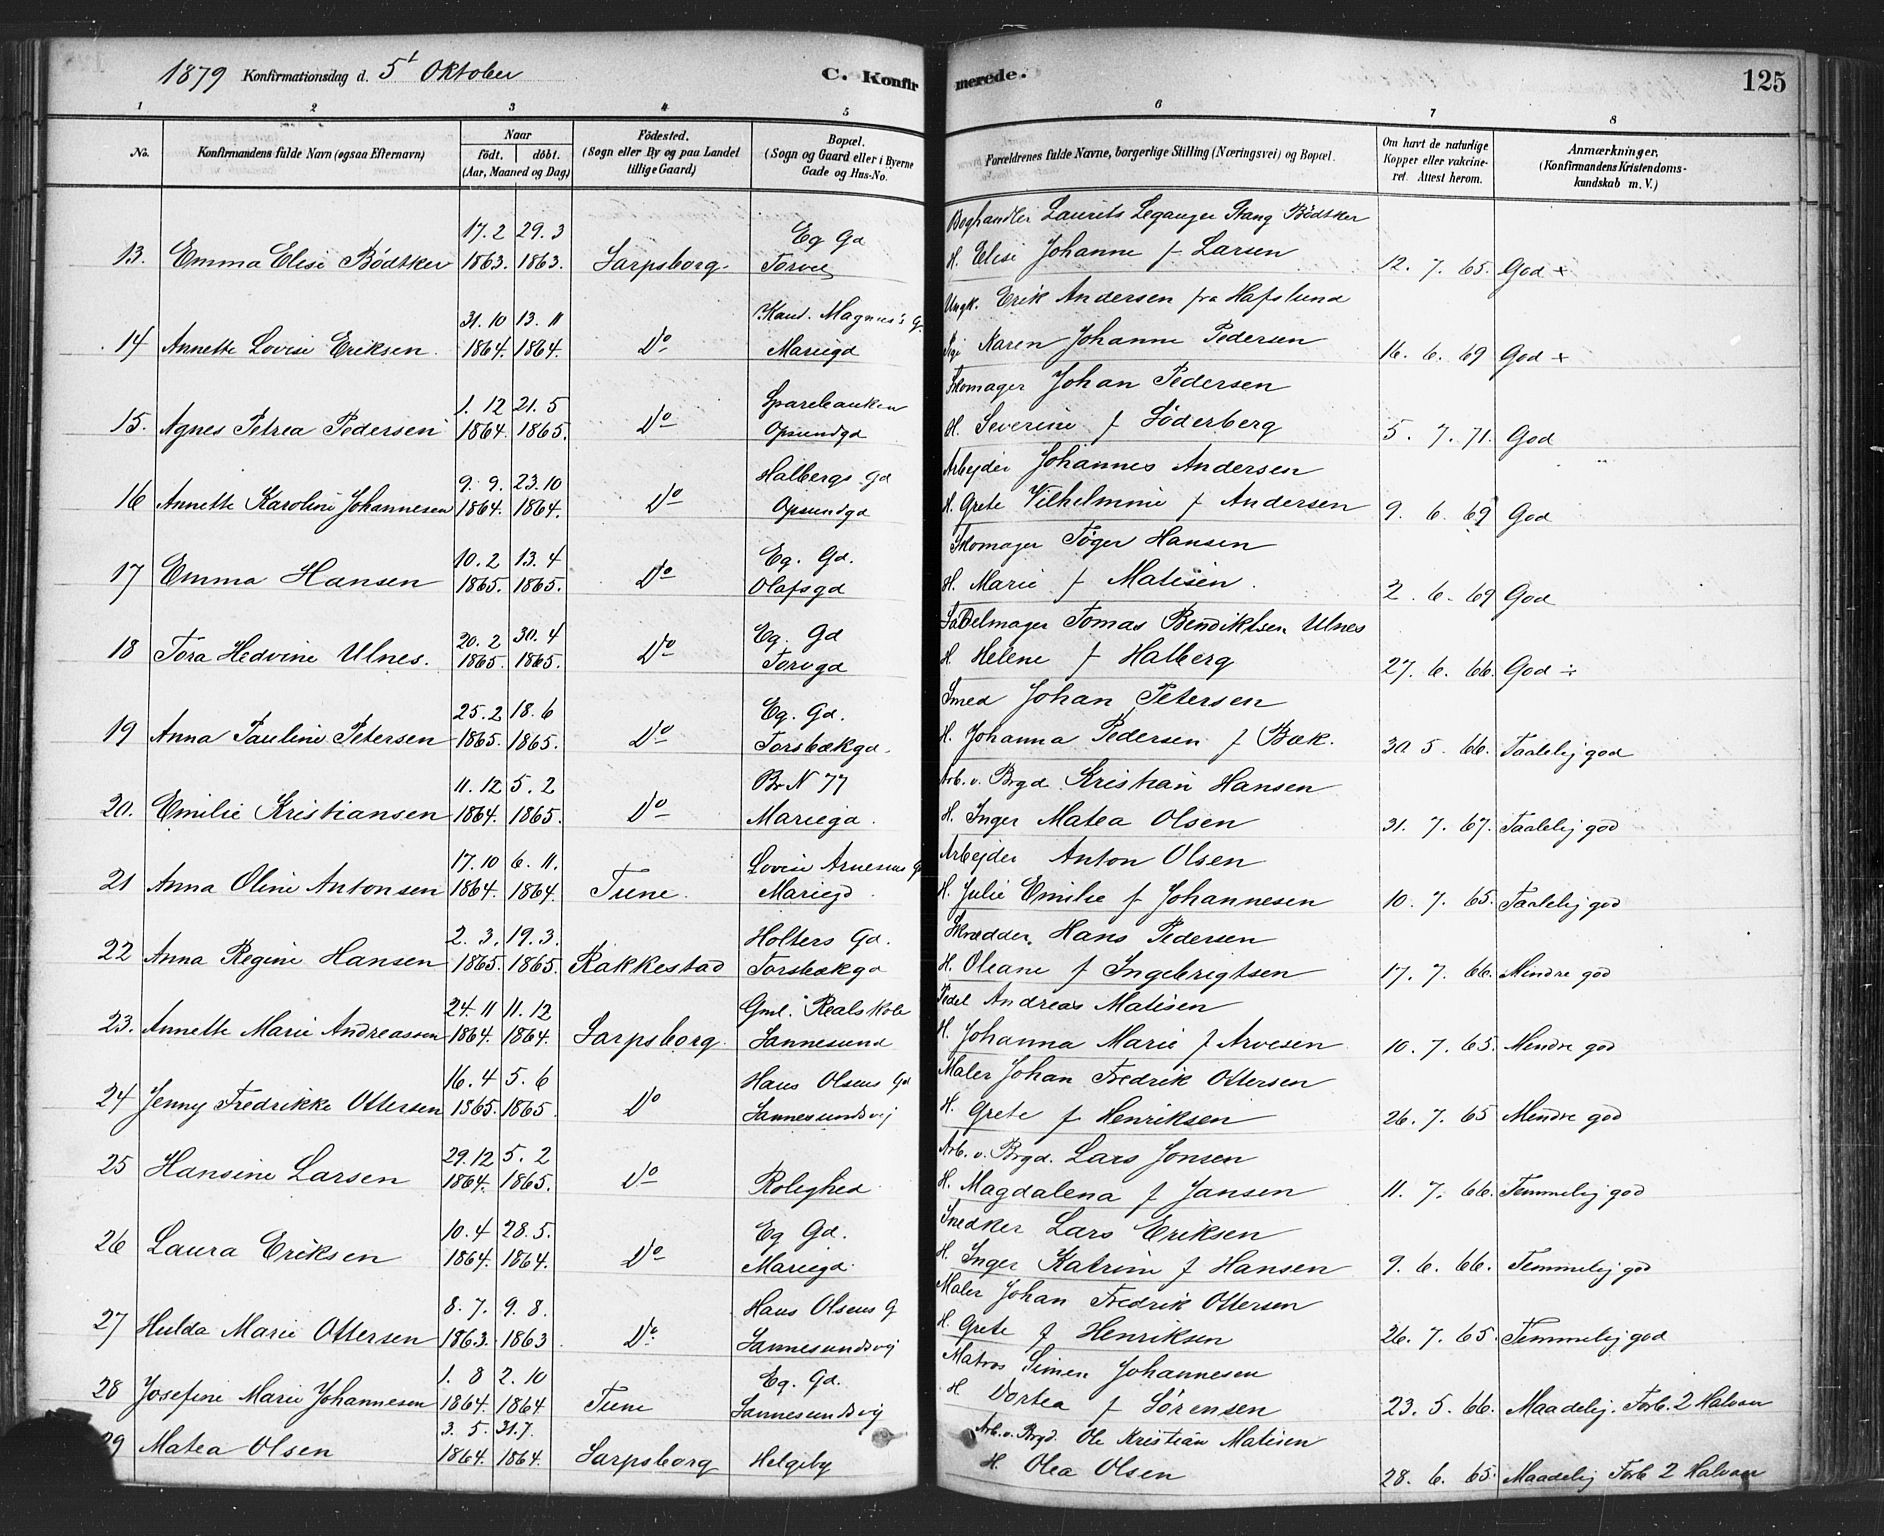 1879 Konfirmationsdag d. 5t Oktober
C. Konfirmerede.
125
1 2 3 4 5 6 7 8
No.
Konfirmandens fulde Navn (ogsaa Efternavn)
Naar
födt. döbt.
(Aar, Maaned og Dag)
Födested.
(Sogn eller By og paa Landet
tillige Gaard)
Bopæl.
(Sogn og Gaard eller i Byerne
Gade og Hus-No.
Forældrenes fulde Navne, borgerlige Stilling (Næringsvei) og Bopæl.
Om havt de naturlige
Kopper eller vakcine-
ret. Attest herom.
Anmærkninger.
(Konfirmandens Kristendoms-
kundskab m. V.)
17. 2 29. 3 Eg Gd Boghandler Laurits Leganger Stang Bödtker
13. Emma Elise Bødtker 1863. 1863. Sarpsborg. Torvet H. Elise Johanne f Larsen 12. 7. 65. God +
31. 10 13. 11 Kand. Magnus's G. Ungk. Erik Andersen fra Hafslund
14 Annette Lovise Eriksen. 1864. 1864. Do Mariegd Pige Karen Johanne Pedersen 16. 6. 69 God +
1. 12 21. 5 Sparebanken Skomager Johan Pedersen
15. Agnes Petrea Pedersen 1864. 1865. Do Opsundgd H. Severine f Söderberg 5. 7. 71. God
9. 9. 23. 10 Halbergs Gd Arbejder Johannes Andersen
16 Annette Karoline Johannesen 1864. 1864. Do Opsundgd H. Grete Vilhelmine f Andersen 9. 6. 69 God
10. 2 13. 4 Eg. Gd. Skomager Töger Hansen
17 Emma Hansen 1865. 1865. Do Olafsgd H. Marie f Matisen. 2. 6. 69 God
20. 2 30. 4 Eg. Gd Sadelmager Tomas Bendiktsen Ulnes
18 Tora Hedvine Ulnes. 1865. 1865. Do Torvgd H. Helene f Halberg 27. 6. 66. God ÷
25. 2 18. 6 Eg. Gd. Smed Johan Petersen
19 Anna Pauline Petersen 1865. 1865. Do Torsbækgd. H. Johanna Pedersen f Bæk. 30 5. 66. Taalelig god
11. 12 5. 2 Br N 77 Arb. v. Brgd. Kristian Hansen
20. Emilie Kristiansen 1864. 1865. Do Mariegd. H. Inger Matea Olsen 31. 7. 67. Taalelig god
17. 10 6. 11. Lovise Arnesens G Arbejder Anton Olsen
21 Anna Oline Antonsen 1864. 1864. Tune. Mariegd. H. Julie Emilie f Johannesen 10. 7. 65. Taalelig god
2. 3. 19. 3. Holters Gd. Skrædder. Hans Pedersen
22 Anna Regine Hansen 1865. 1865. Rakkestad Torsbækgd H. Oleane f Ingebrigtsen 17. 7. 66. Mindre god
24. 11 11. 12 Gml. Realskole Pedel Andreas Matisen
23. Annette Marie Andreassen 1864. 1864. Sarpsborg. Sannesund H. Johanna Marie f Arvesen 10. 7. 65. Mindre god
16. 4 5. 6 Hans Olsens Gd Maler Johan Fredrik Ottersen
24 Jenny Fredrikke Ottersen 1865. 1865. Do Sannesundsvej H. Grete f Henriksen 26. 7. 65 Mindre god
29. 12 5. 2 Arb. v. Brgd. Lars Jonsen
25 Hansine Larsen 1864. 1865. Do Rolighed H. Magdalena f Jansen 11. 7. 66. Temmelig god
10. 4 28. 5. Eg Gd. Snedker Lars Eriksen
26 Laura Eriksen 1864. 1864. Do Mariegd. H. Inger Katrine f Hansen 9. 6. 66. Temmelig god
8. 7. 9. 8. Hans Olsens G Maler Johan Fredrik Ottersen
27 Hulda Marie Ottersen 1863. 1863. Do Sannesundsvej H. Grete f Henriksen 26. 7. 65. Temmelig god
1. 8 2. 10 Eg. Gd. Matros Simen Johannesen
28 Josefine Marie Johannesen 1864. 1864 Tune Sannesundsvej H. Dortea f Sörensen 23. 5. 66. Maadelig. Forb. 2 Halvaar
3. 5. 31. 7. Arb. v. Brgd. Ole Kristian Matisen
29 Matea Olsen 1864. 1864. Sarpsborg Helgeby H. Olea Olsen 28. 6. 65. Maadelig Forb 2 Halvaar